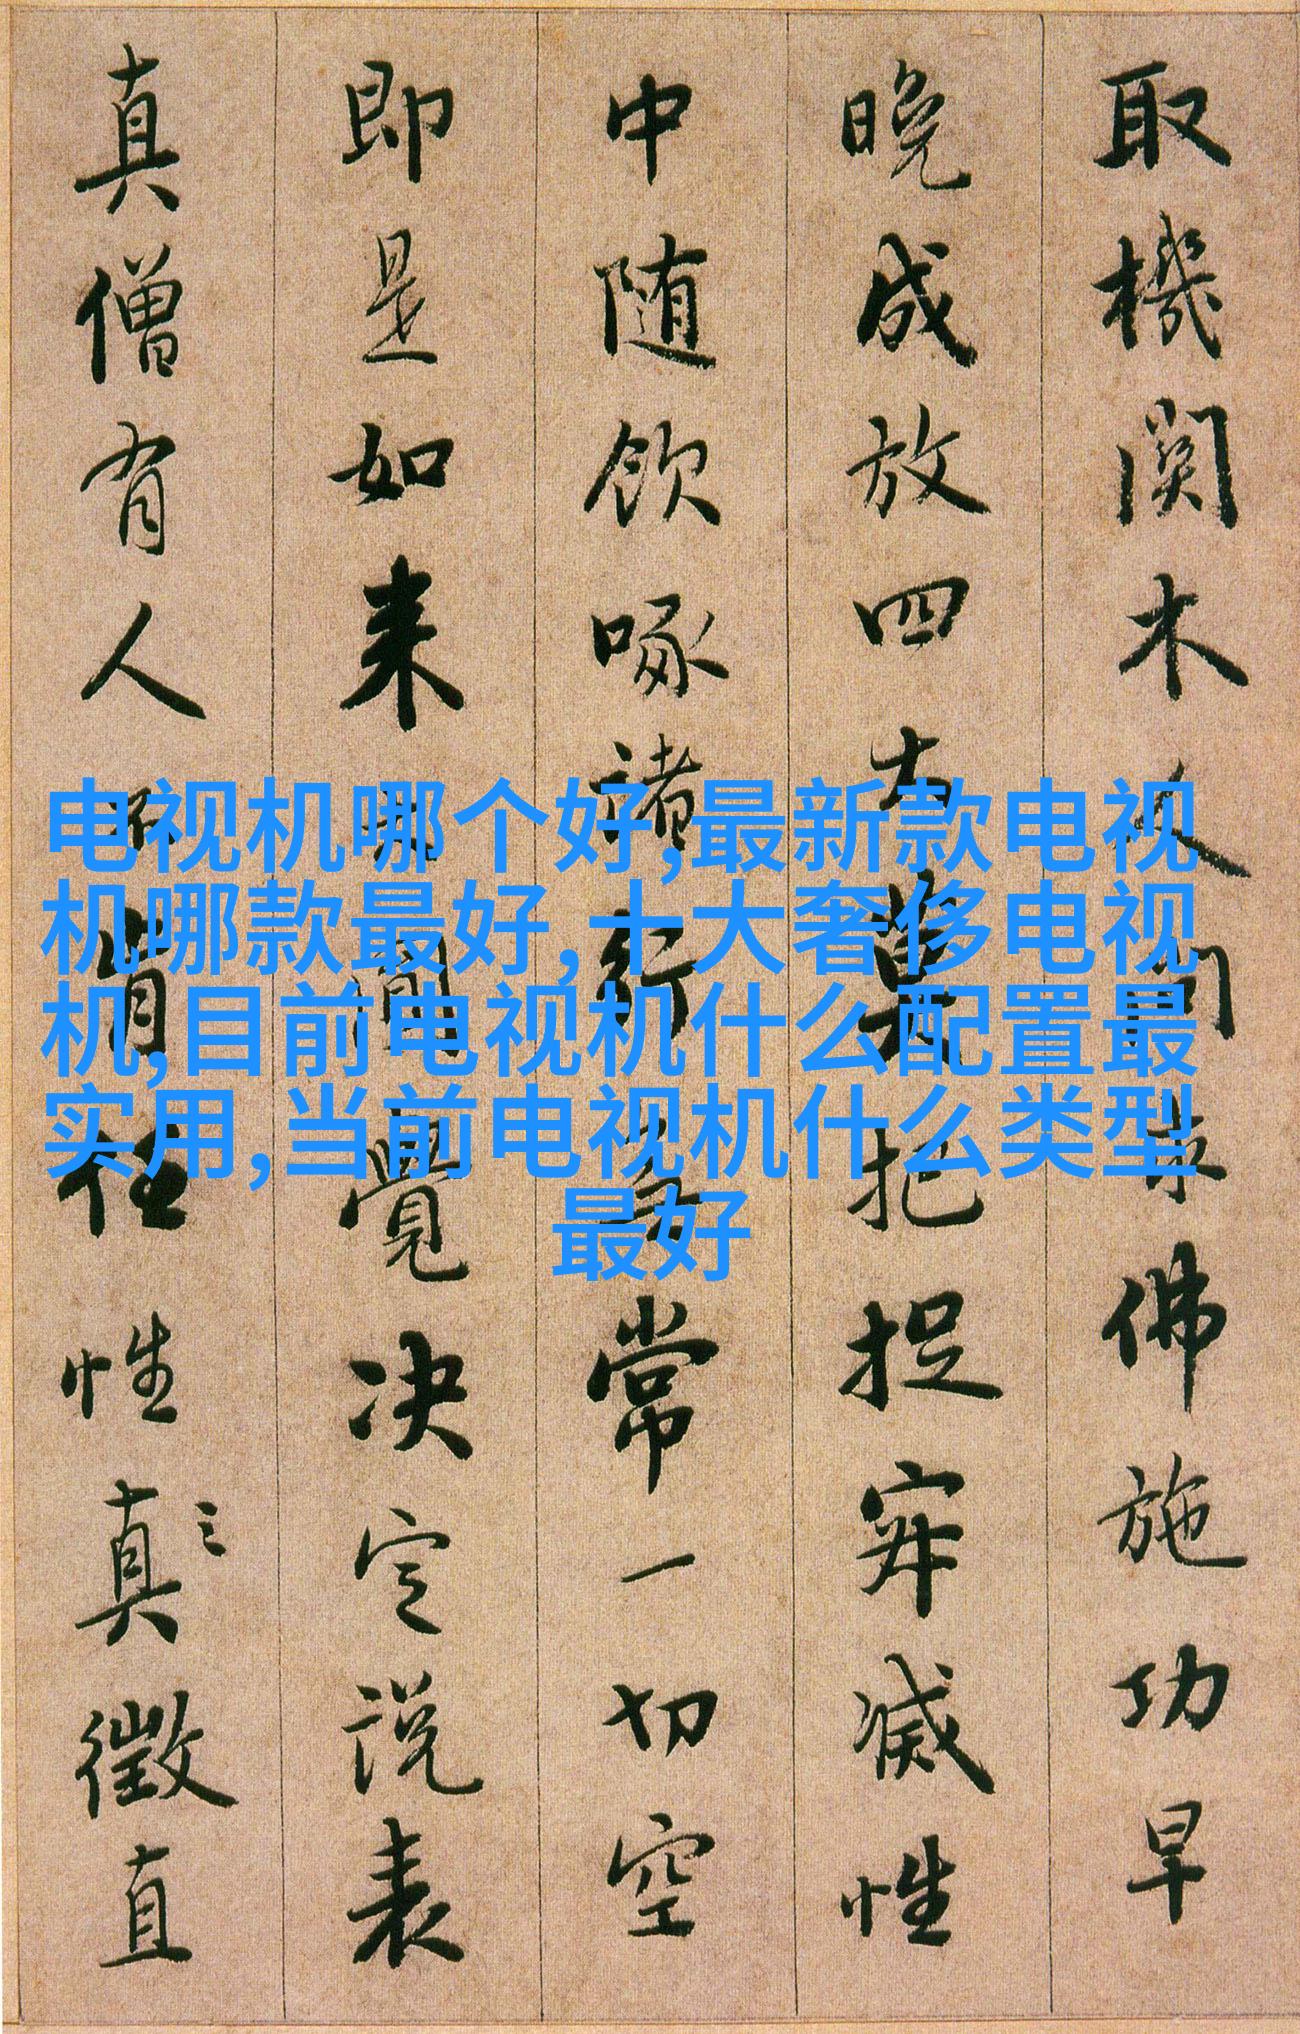 取機関木人问求佛施功早
晚成放四大莫把捉寂滅性
中随飲啄諸行無常一切空
即是如来大圓覺决定説表
真僧有人不肯任性真徵直
电视机哪个好,最新款电视
机哪款最好,十大奢侈电视
机,目前电视机什么配置最
实用,当前电视机什么类型
最好